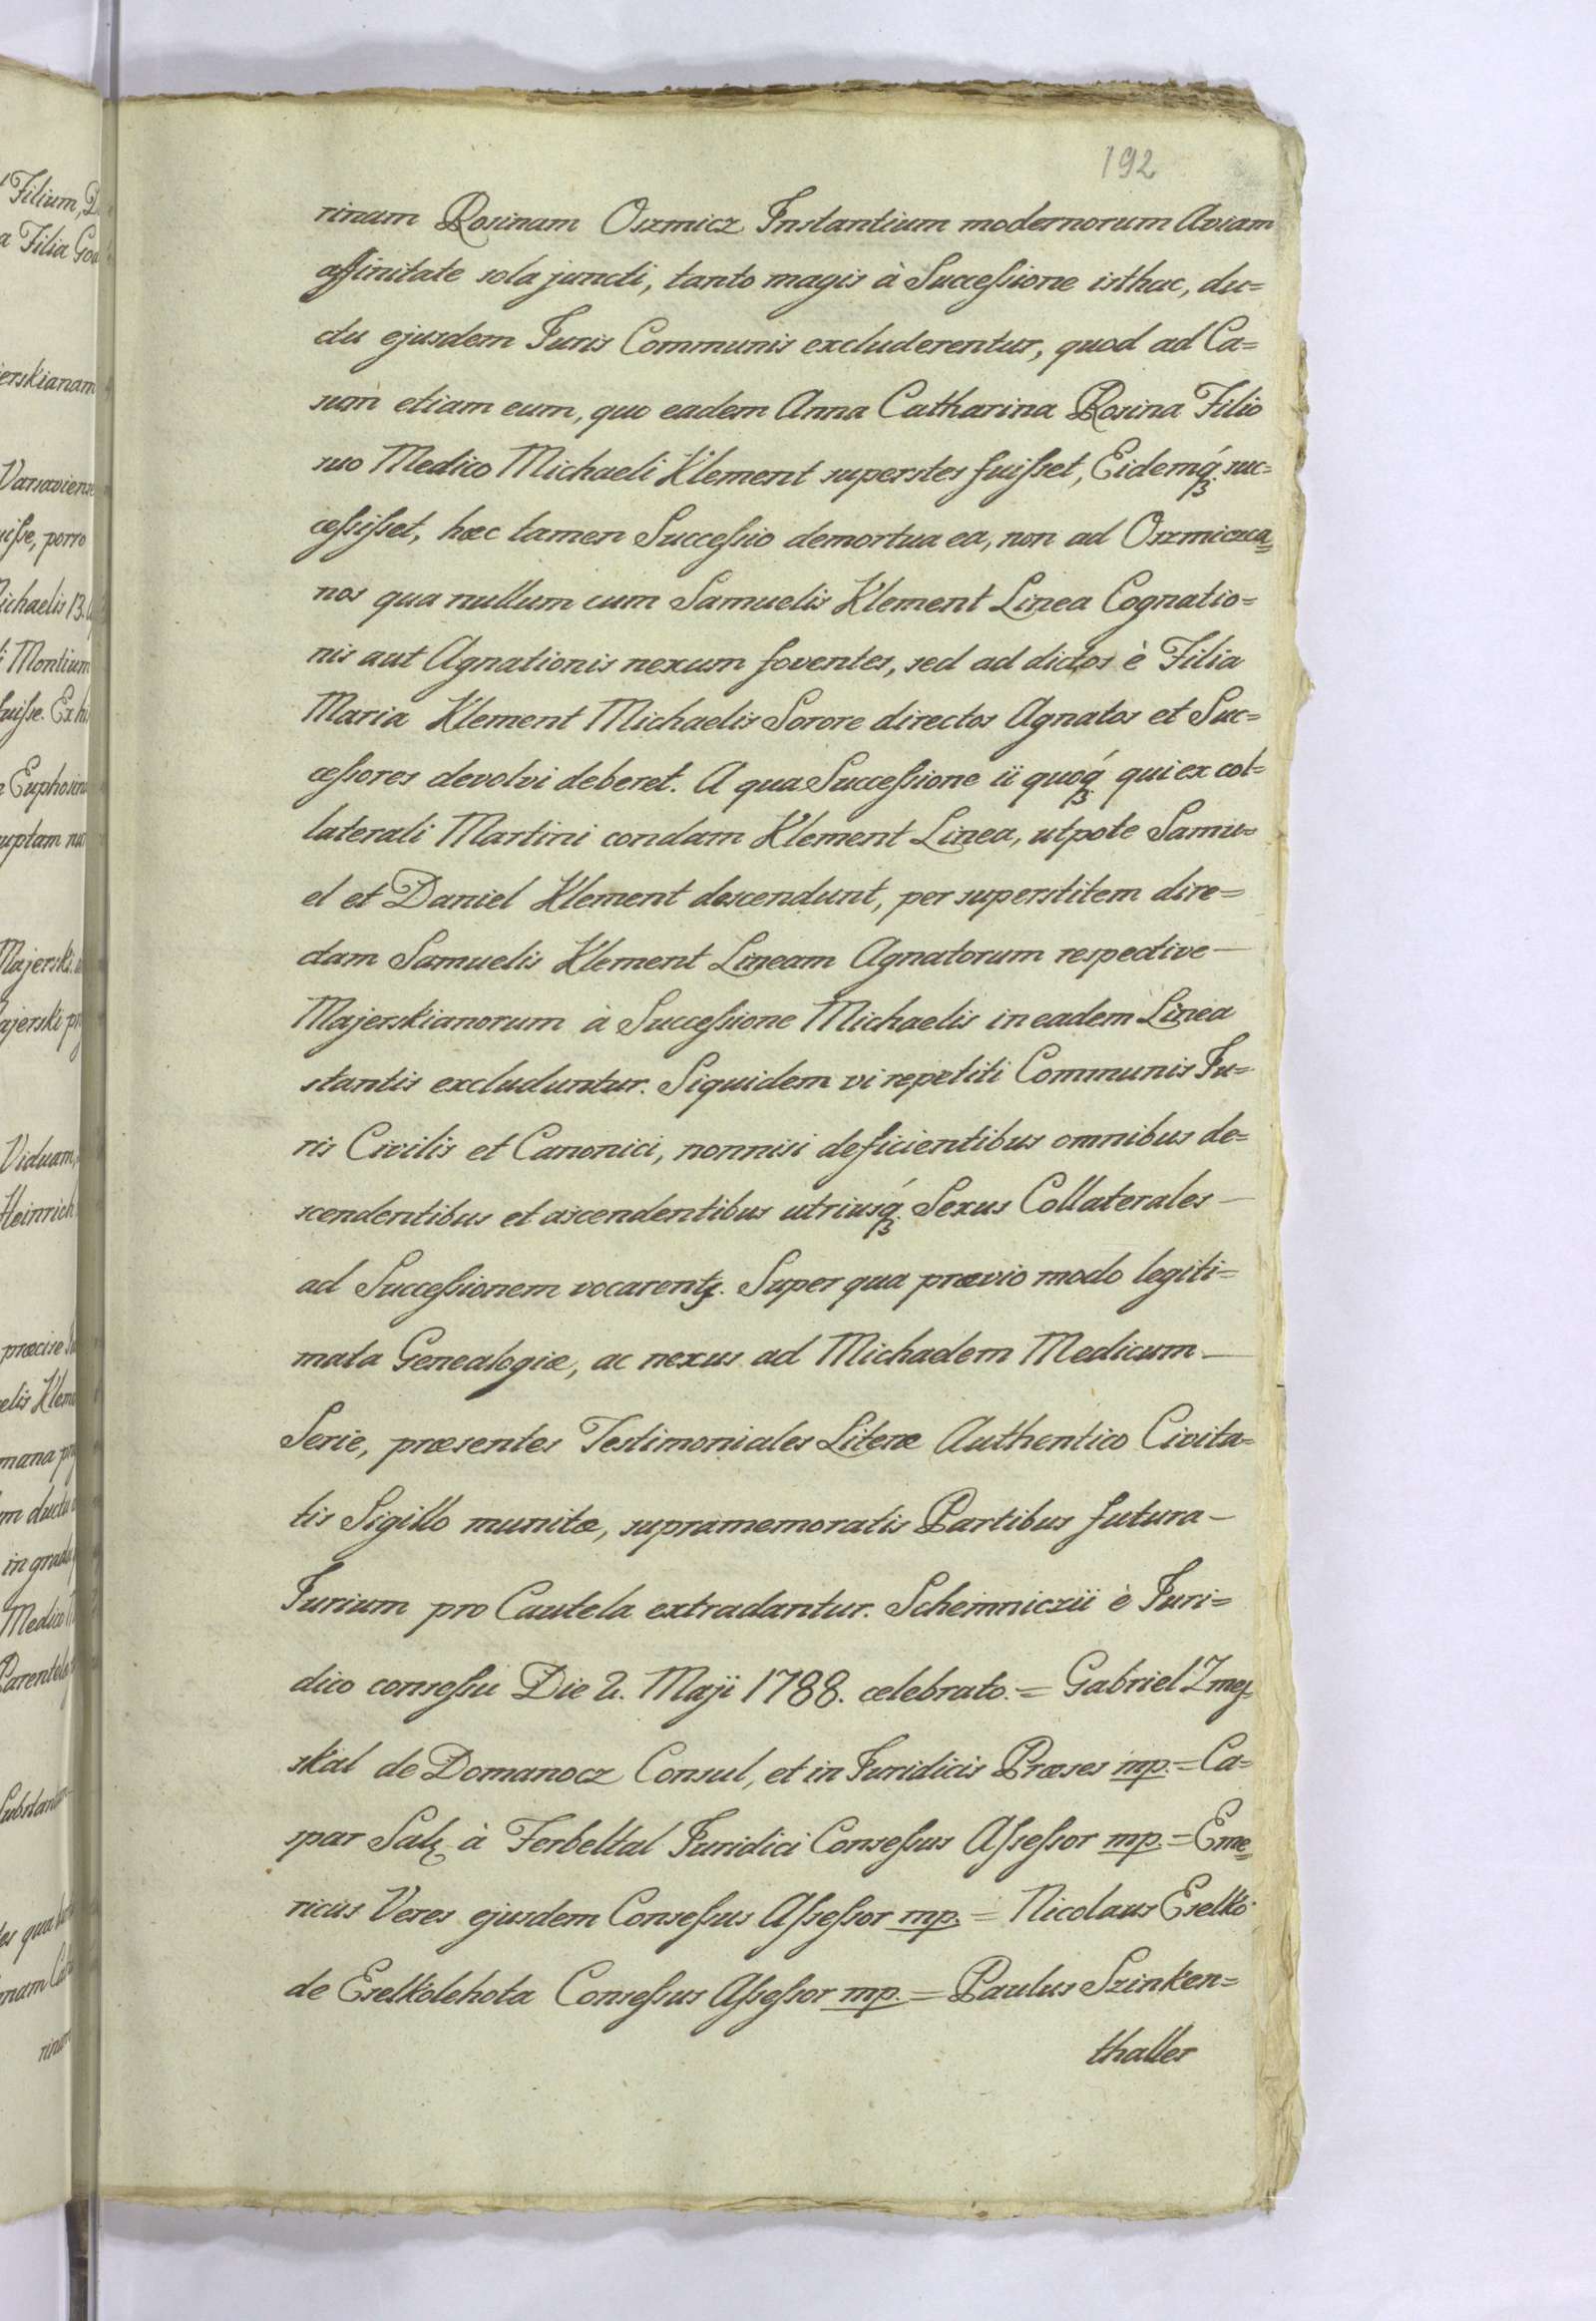 192
rinam Rosinam Oszmicz Instantium modernorum Aviam
affinitate sola juncti, tanto magis à Successione isthac, du=
ctu ejusdem Juris Communis excluderentur, quod ad Ca=
sum etiam eum, quo eadem Anna Catharina Rosina Filio
suo Medico Michaeli Klement superstes fuisset, Eidemq́ꝫ suc=
cessisset, hæc tamen Successio demortua ea, non ad Oszmicza=
nos qua nullum cum Samuelis Klement Linea Cognatio=
nis aut Agnationis nexum foventes, sed ad dictos è Filia
Maria Klement Michaelis Sorore directos Agnatos et Suc=
cessores devolvi deberet. A qua Successione ii quoq́ꝫ qui ex col=
laterali Martini condam Klement Linea, utpote Samu=
el et Daniel Klement descendunt, per superstitem dire=
ctam Samuelis Klement Lineam Agnatorum respective—
Majerskianorum à Successione Michaelis in eadem Linea
stantis excluduntur. Siquidem vi repetiti Communis Ju=
ris Civilis et Canonici, nonnisi deficientibus omnibus de=
scendentibus et ascendentibus utriusq́ꝫ Sexus Collaterales—
ad Successionem vocarentꝛ. Super qua prævio modo legiti=
mata Genealogiæ, ac nexus ad Michaelem Medicum—
Serie, præsentes Testimoniales Literæ Authentico Civita=
tis Sigillo munitæ, supramemoratis Partibus futura—
Jurium pro Cautela extradantur. Schemniczii è Juri=
dico consessu Die 2. Maji 1788. celebrato.= Gabriel Zmes=
skal de Domanocz Consul, et in Juridicis Præses mp.= Ca=
spar Salz à Ferbeltal Juridici Consessus Assessor mp.= Eme=
ricus Veres ejusdem Consessus Assessor mp.= Nicolaus Eselkö
de Eselkölehota Consessus Assessor mp.= Paulus Szinken=
thaller